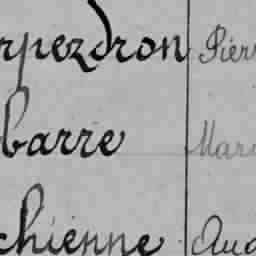 rpezdron Pierr
barre Mari
chienne Aug